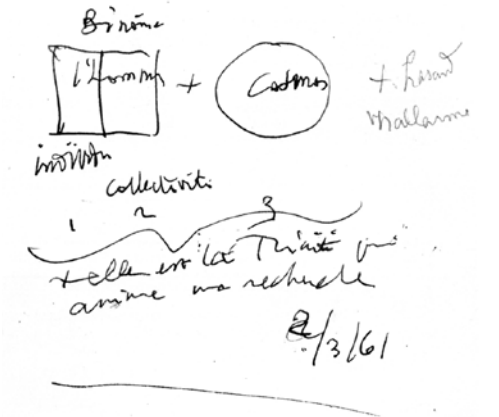 Binôme
l'homme + Cosmos
+ hasard
Mallarmé
individu
Collectivité
1 2 3
telle est la Trinité qui
anime ma recherche
2/3/61